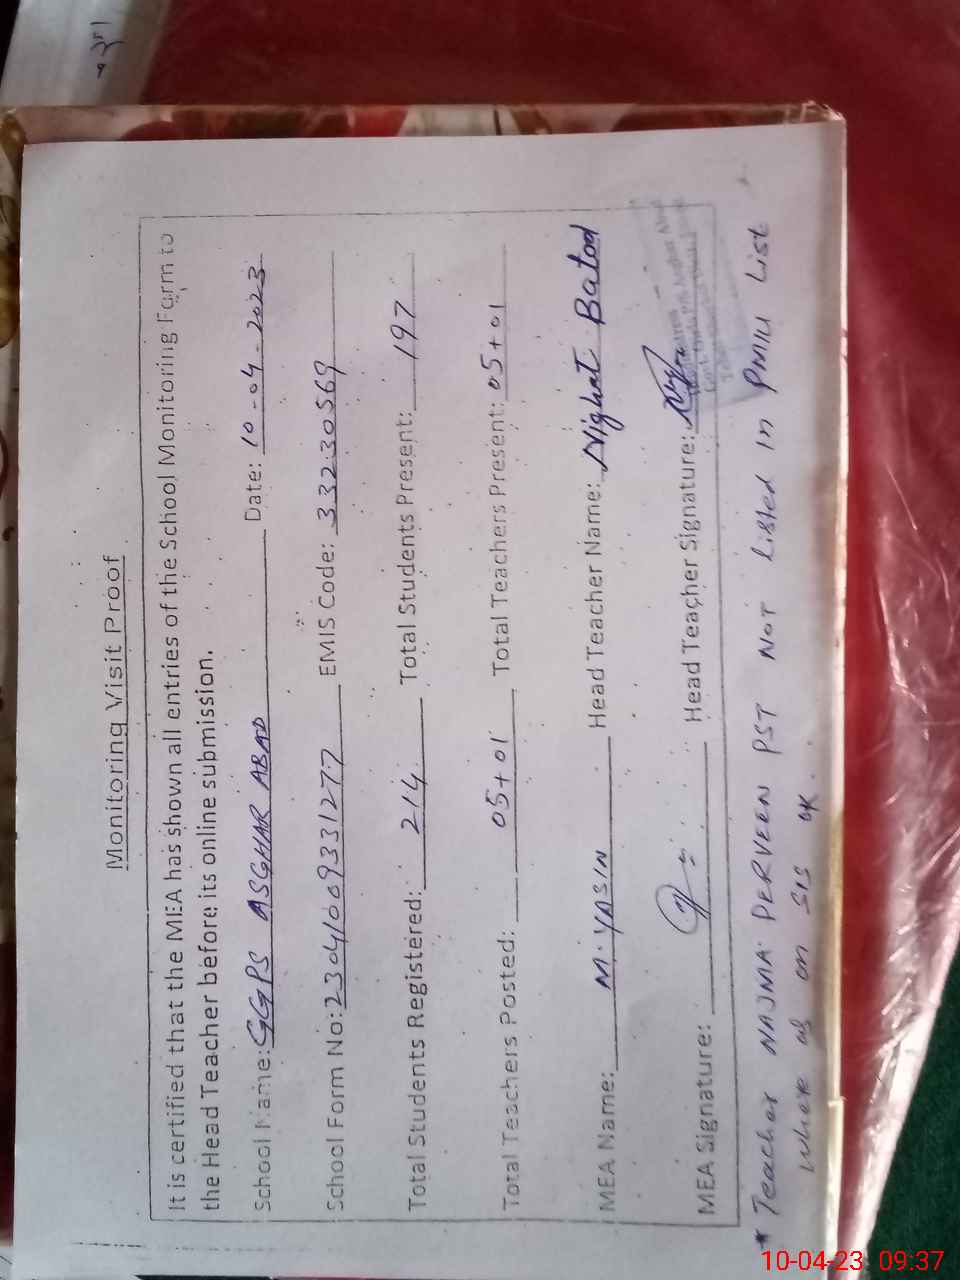 Monitoring Visit Proof
It is certified that the MEA has shown all entries of the School Monitoring Form to
the Head Teacher before its online submission.
School Name: GGPS ASGHAR ABAD Date: 10-04-2023
School Form No: 23041009331277 EMIS Code: 33230569
Total Students Registered: 214 Total Students Present: 197
Total Teachers Posted: 05+01 Total Teachers Present: 05+01
MEA Name: M. YASIN Head Teacher Name: Nighat Batool
MEA Signature: Head Teacher Signature:
* Teacher NAJMA PERVEEN PST NOT Listed in PMIU List
where as on SIS ok.
10-04-23 09:37